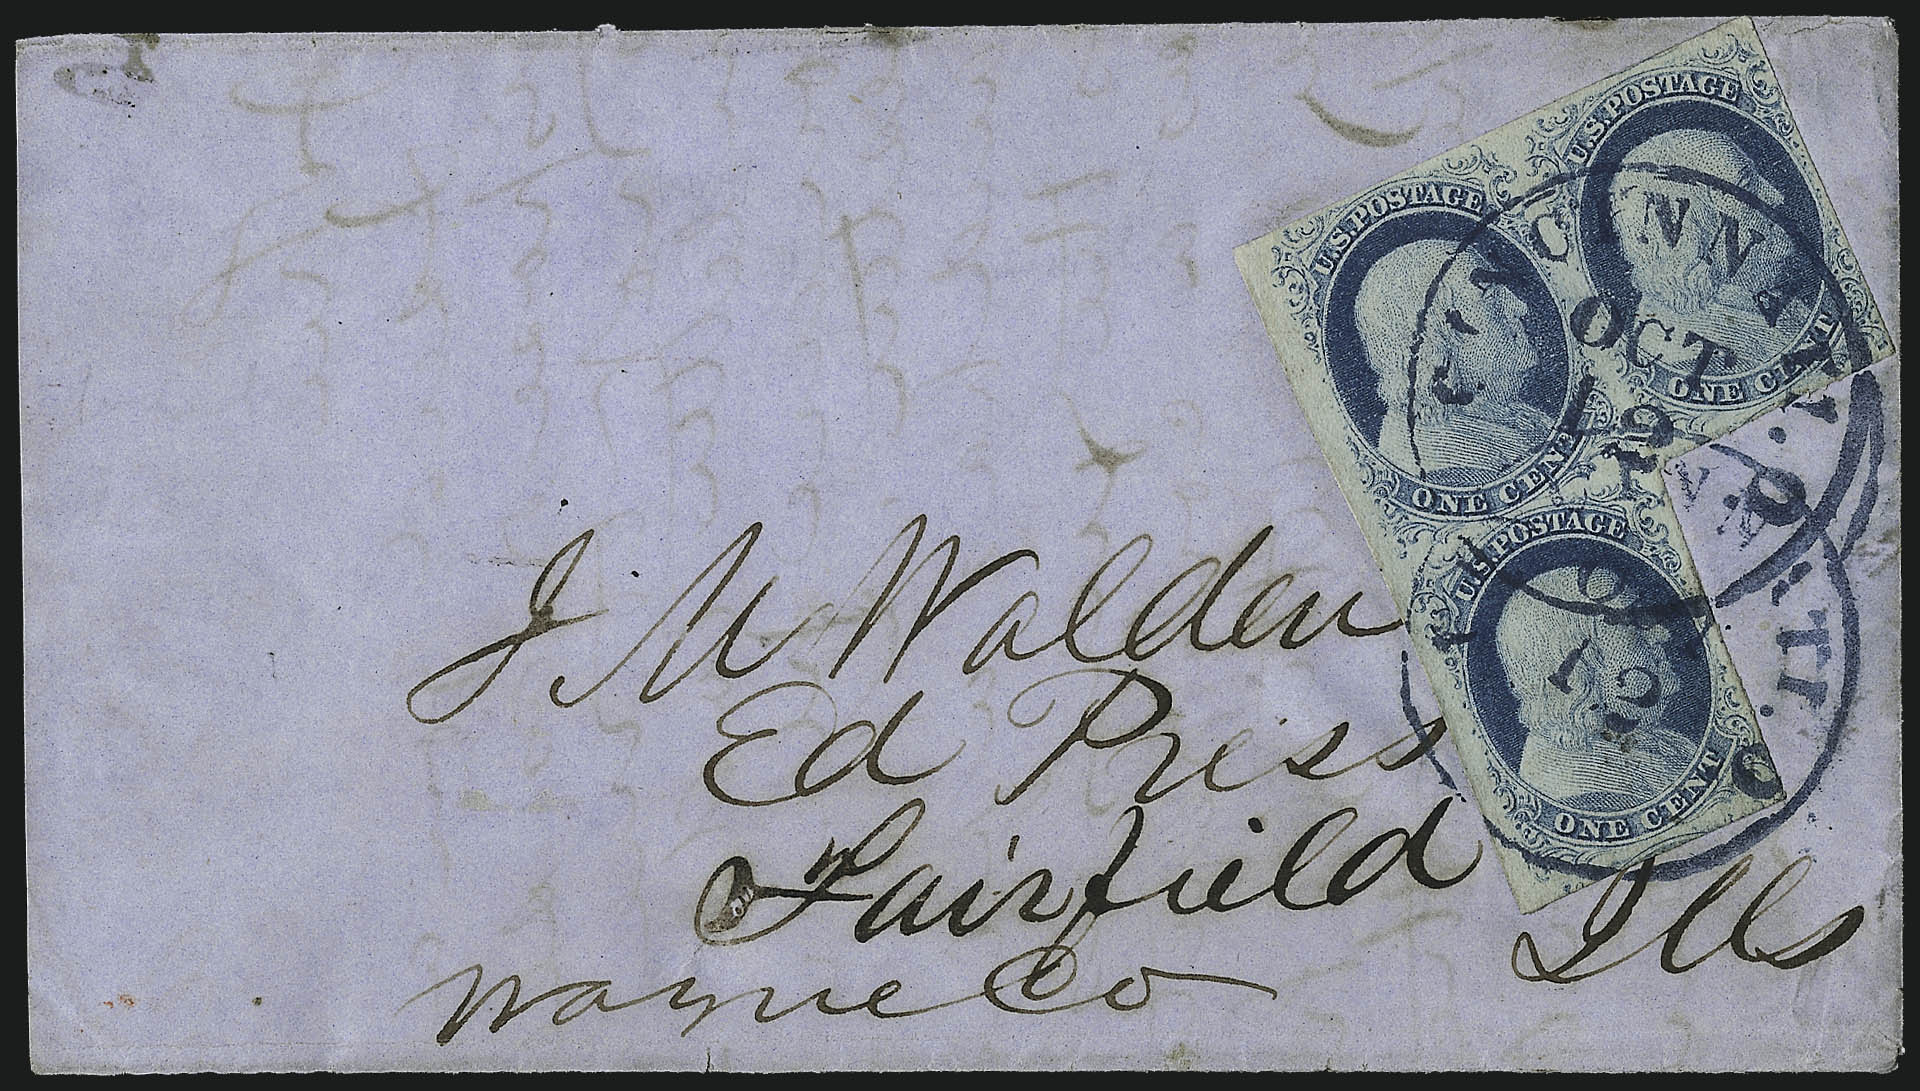 U.S. POSTAGE
ONE CENT
U.S. POSTAGE
ONE CENT
U.S. POSTAGE
ONE CENT
OCT
19
J M Walden
Ed Press
Fairfield
Ills
Wayne Co